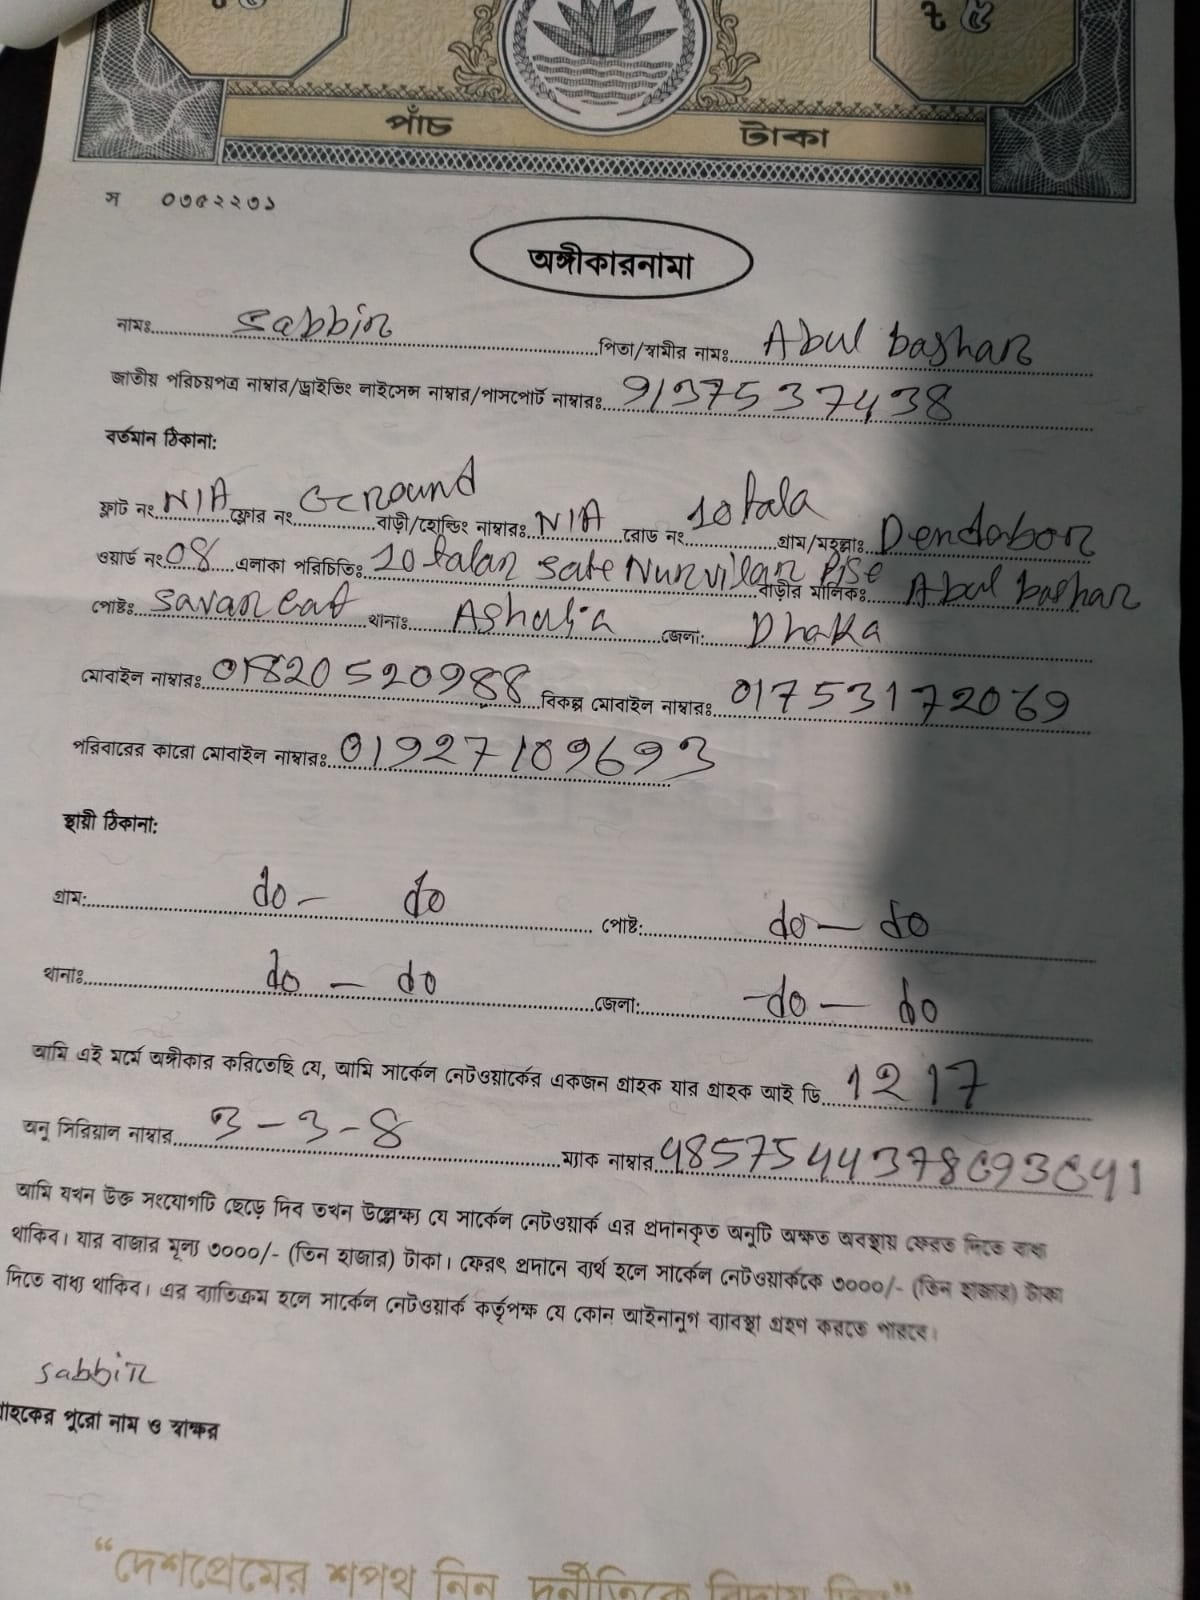 পাঁচ টাকা
স ০৩৫২২৩১
অঙ্গীকারনামা
নামঃ sabbir পিতা/স্বামীর নামঃ Abul bashar
জাতীয় পরিচয়পত্র নাম্বার/ড্রাইভিং লাইসেন্স নাম্বার/পাসপোর্ট নাম্বারঃ 9137537438
বর্তমান ঠিকানা:
ফ্লাট নং N/A ফ্লোর নং Ground বাড়ী/হোল্ডিং নাম্বারঃ N/A রোড নং 10 tala গ্রাম/মহল্লাঃ Dendabor
ওয়ার্ড নং 08 এলাকা পরিচিতিঃ 10 talar sate Nurvillar বাড়ীর মালিকঃ Abul bashar
পোষ্টঃ Savar থানাঃ Ashulia জেলা: Dhaka
মোবাইল নাম্বারঃ 01820520988 বিকল্প মোবাইল নাম্বারঃ 01753172069
পরিবারের কারো মোবাইল নাম্বারঃ 01927109693
স্থায়ী ঠিকানা:
গ্রাম: do - do পোষ্ট: do - do
থানাঃ do - do জেলা: do - do
আমি এই মর্মে অঙ্গীকার করিতেছি যে, আমি সার্কেল নেটওয়ার্কের একজন গ্রাহক যার গ্রাহক আই ডি 1217
অনু সিরিয়াল নাম্বার 3-3-8 ম্যাক নাম্বার
আমি যখন উক্ত সংযোগটি ছেড়ে দিব তখন উল্লেক্ষ্য যে সার্কেল নেটওয়ার্ক এর প্রদানকৃত অনুটি অক্ষত অবস্থায় ফেরত দিতে বাধ্য
থাকিব। যার বাজার মূল্য ৩০০০/- (তিন হাজার) টাকা। ফেরৎ প্রদানে ব্যর্থ হলে সার্কেল নেটওয়ার্ককে ৩০০০/- (তিন হাজার) টাকা
দিতে বাধ্য থাকিব। এর ব্যতিক্রম হলে সার্কেল নেটওয়ার্ক কর্তৃপক্ষ যে কোন আইনানুগ ব্যাবস্থা গ্রহণ করতে পারবে।
sabbir
গ্রাহকের পুরো নাম ও স্বাক্ষর
“দেশপ্রেমের শপথ নিন দুর্নীতিকে বিদায় দিন”